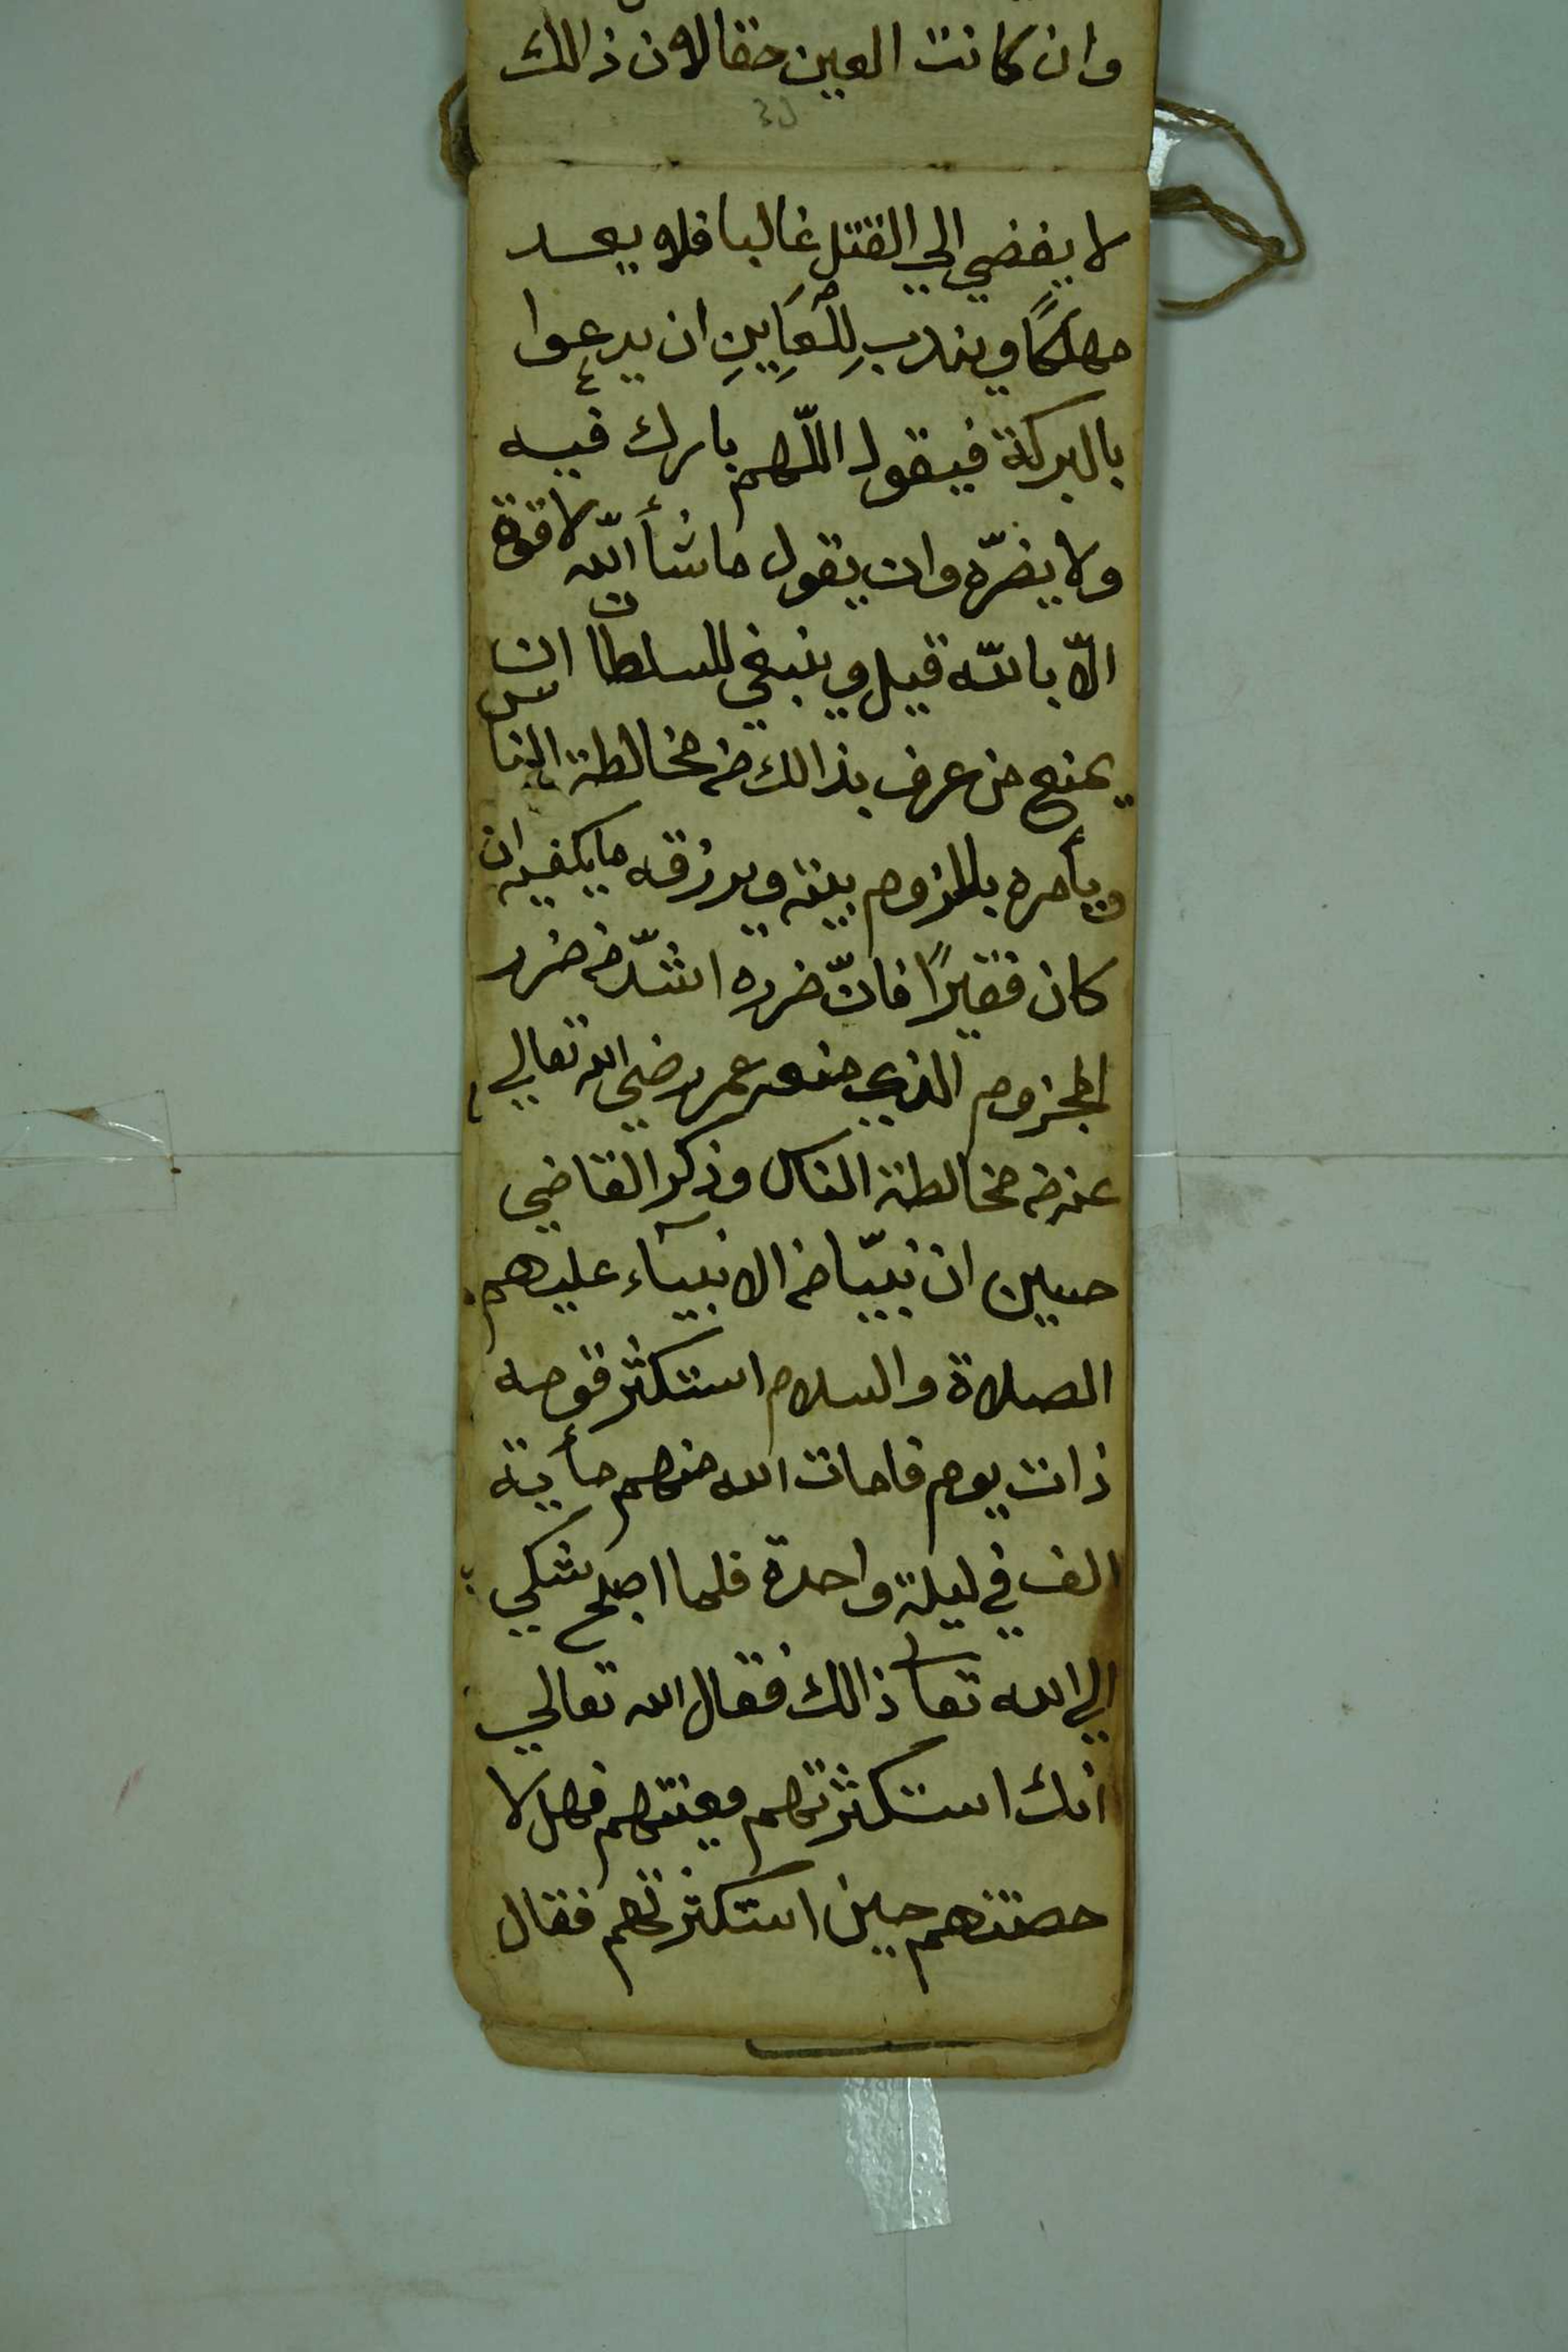 وان كانت العين حقا لان ذالك
لا يفضي الي القتل غالبا فلا يعد
مهلكًا ويندب لِلْعَايِنِ ان يدعوا
بالبركة فيقول اللّهم بارك فيه
ولا يضرّه وان يقول ماشأ اللّه لا قوة
الّا باللّه قيل وينبغي للسلطان ان
يمنع من عرف بذالك من مخالطة الناس
ويأمره بلزوم بيته ويرزقه ما يكفيه ان
كان فقيرًا فانّ ضرره اشدّ من ضرر
المجزوم الذي منعه عمر رضي الله تعالي
عنه من مخالطة الناس وذكر القاضي
حسين ان نبيّا من الانبيآء عليهم
الصلاة والسلام استكثر قومه
ذات يوم فامات الله منهم مأية
الف في ليلة واحدة فلما اصبح شكي
الي الله تعا ذالك فقال الله تعالي
انك استكثرتهم وعنتهم فهلا
حصنتهم حين استكثرتهم فقال